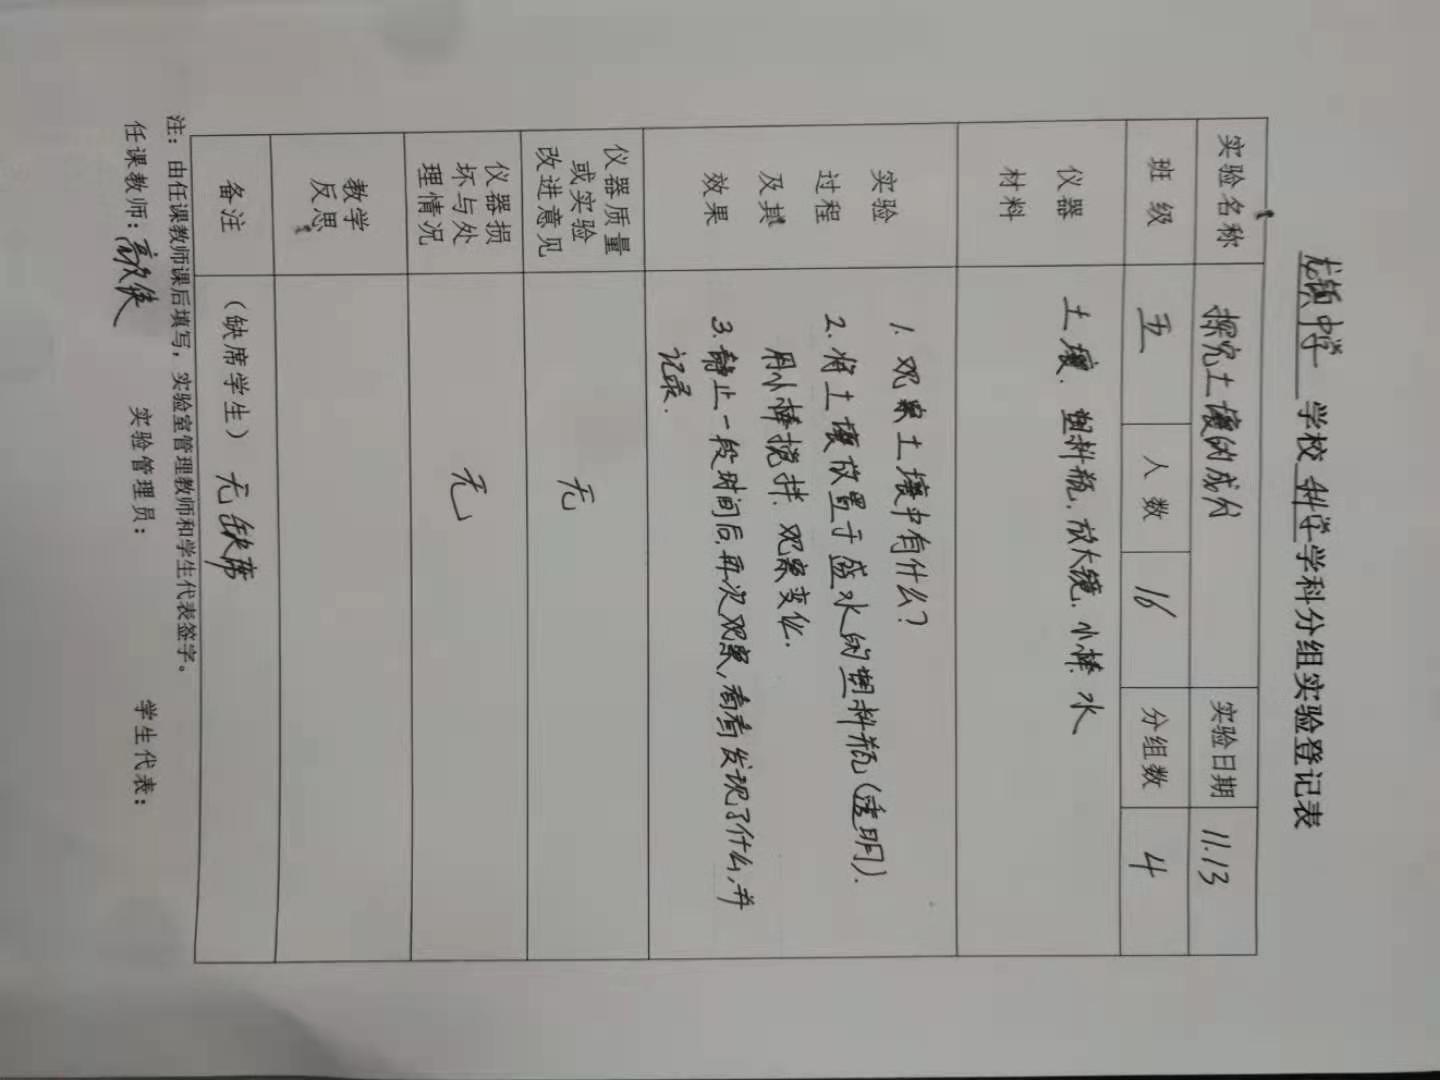 龙镇中学 学校 科学 学科分组实验登记表
实验名称 探究土壤的成分 实验日期 11.13
班级 五 人数 16 分组数 4
仪器材料 土壤、塑料瓶、放大镜、小棒、水
实验过程及其效果
1. 观察土壤中有什么?
2. 将土壤放置于盛水的塑料瓶(透明).
用小棒搅拌. 观察变化.
3. 静止一段时间后,再次观察,看看发现了什么,并
记录.
仪器质量或实验改进意见 无
仪器损坏与处理情况 无
教学反思
备注 (缺席学生) 无缺席
注:由任课教师课后填写,实验室管理教师和学生代表签字。
任课教师: 实验管理员: 学生代表: